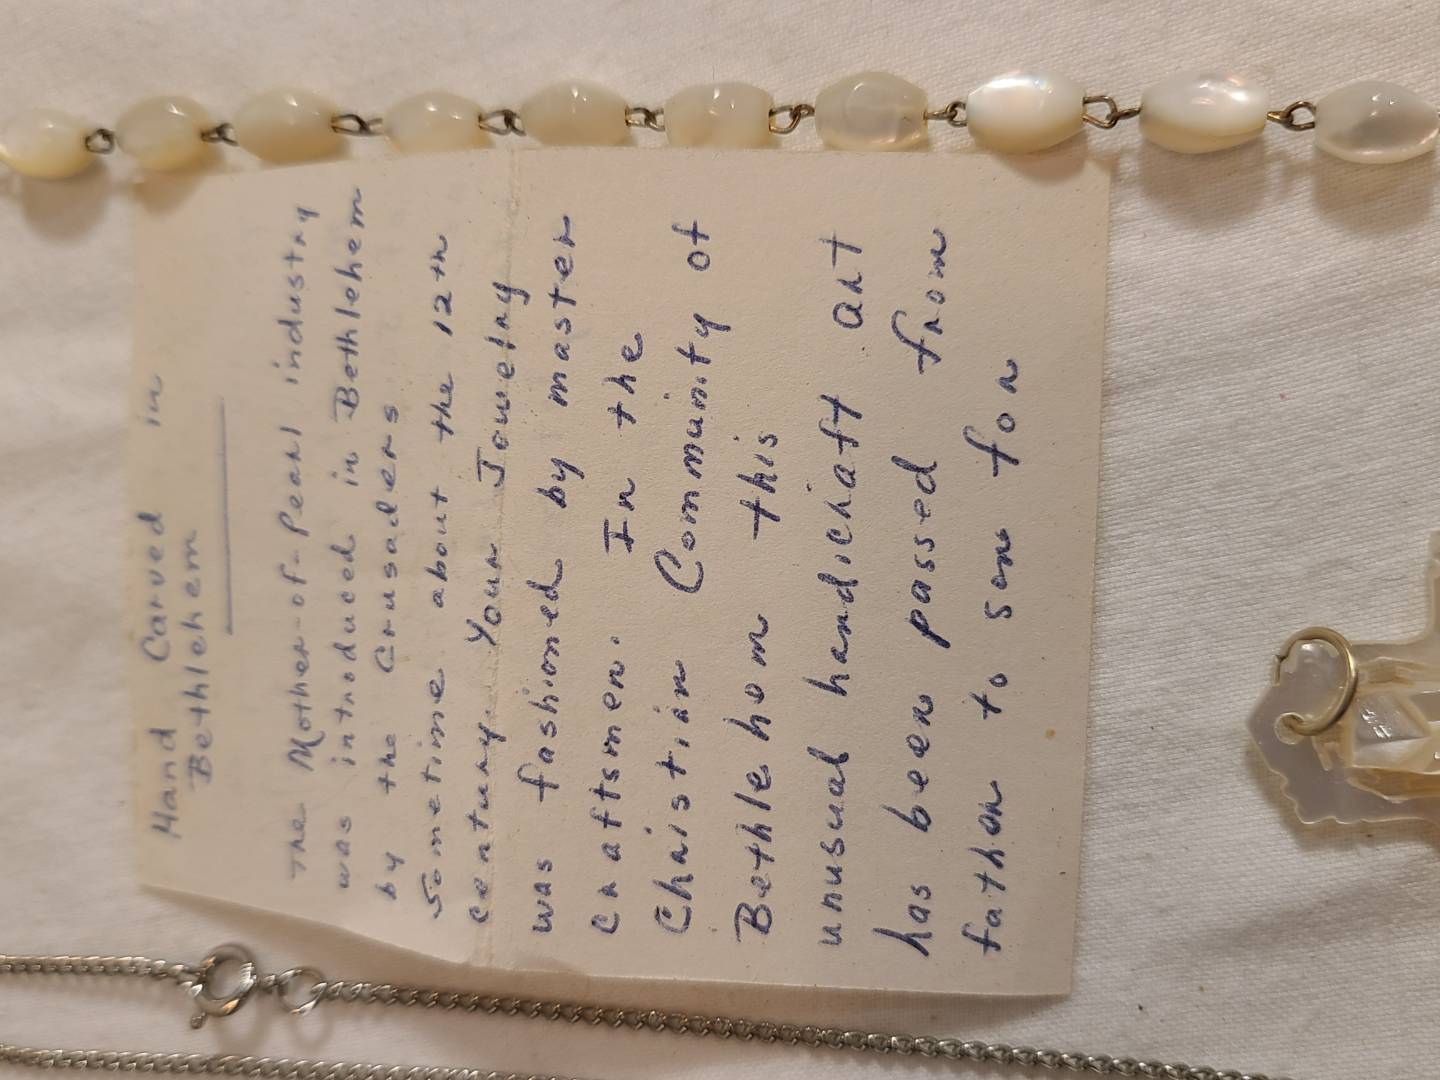 Hand Carved in
Bethlehem
The Mother-of-Pearl industry
was introduced in Bethlehem
by the Crusaders
Sometime about the 12th
century. Your Jowelry
was fashioned by master
craftsmen. In the
Chaistian Community of
Bethlehom this
unusual handichaft art
has been passed from
fathor to son for